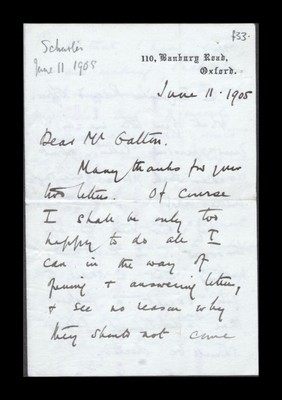 Schuster
June 11 1905
133.
110, Banbury Road,
Oxford.
June 11. 1905
Dear Mr Galton.
Many thanks for your
two letters. Of course
I shall be only too
happy to do all I
can in the way of
opening & answering letters,
& see no reason why
they should not come